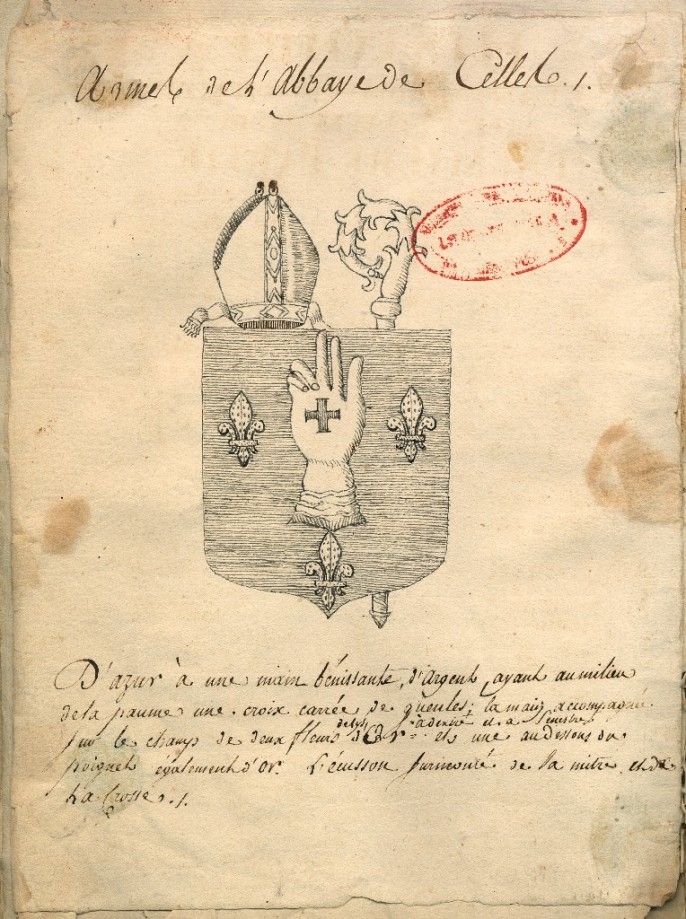 Armes de l'Abbaye de Celles.1.
D'azur à une main bénissante, d'argent, ayant au milieu
de la paume une croix carrée de gueules; la main accompagnée
sur le champ de deux fleurs de lys d'or à dextre et a senestre et une au dessous du
poignet également d'or. L'écusson surmonté de la mitre et de
la Crosse.1.